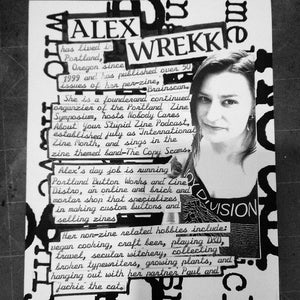 ALEX
WREKK
has lived in
Portland,
Oregon since
1999 and has published over 50
issues of her per-zine,
Brainscan.
She is a founder and continued
organizer of the Portland Zine
Symposium, hosts Nobody Cares
About Your Stupid Zine Podcast,
established July as International
Zine Month, and sings in the
zine themed band—The Copy Scams.
Alex's day job is running
Portland Button Works and Zine
Distro, an online and brick and
mortar shop that specializes
in making custom buttons and
selling zines.
Her non-zine related hobbies include:
vegan cooking, craft beer, playing D&D,
travel, secular witchery, collecting
broken typewriters, growing plants, and
hanging out with her partner Paul and
jackie the cat.